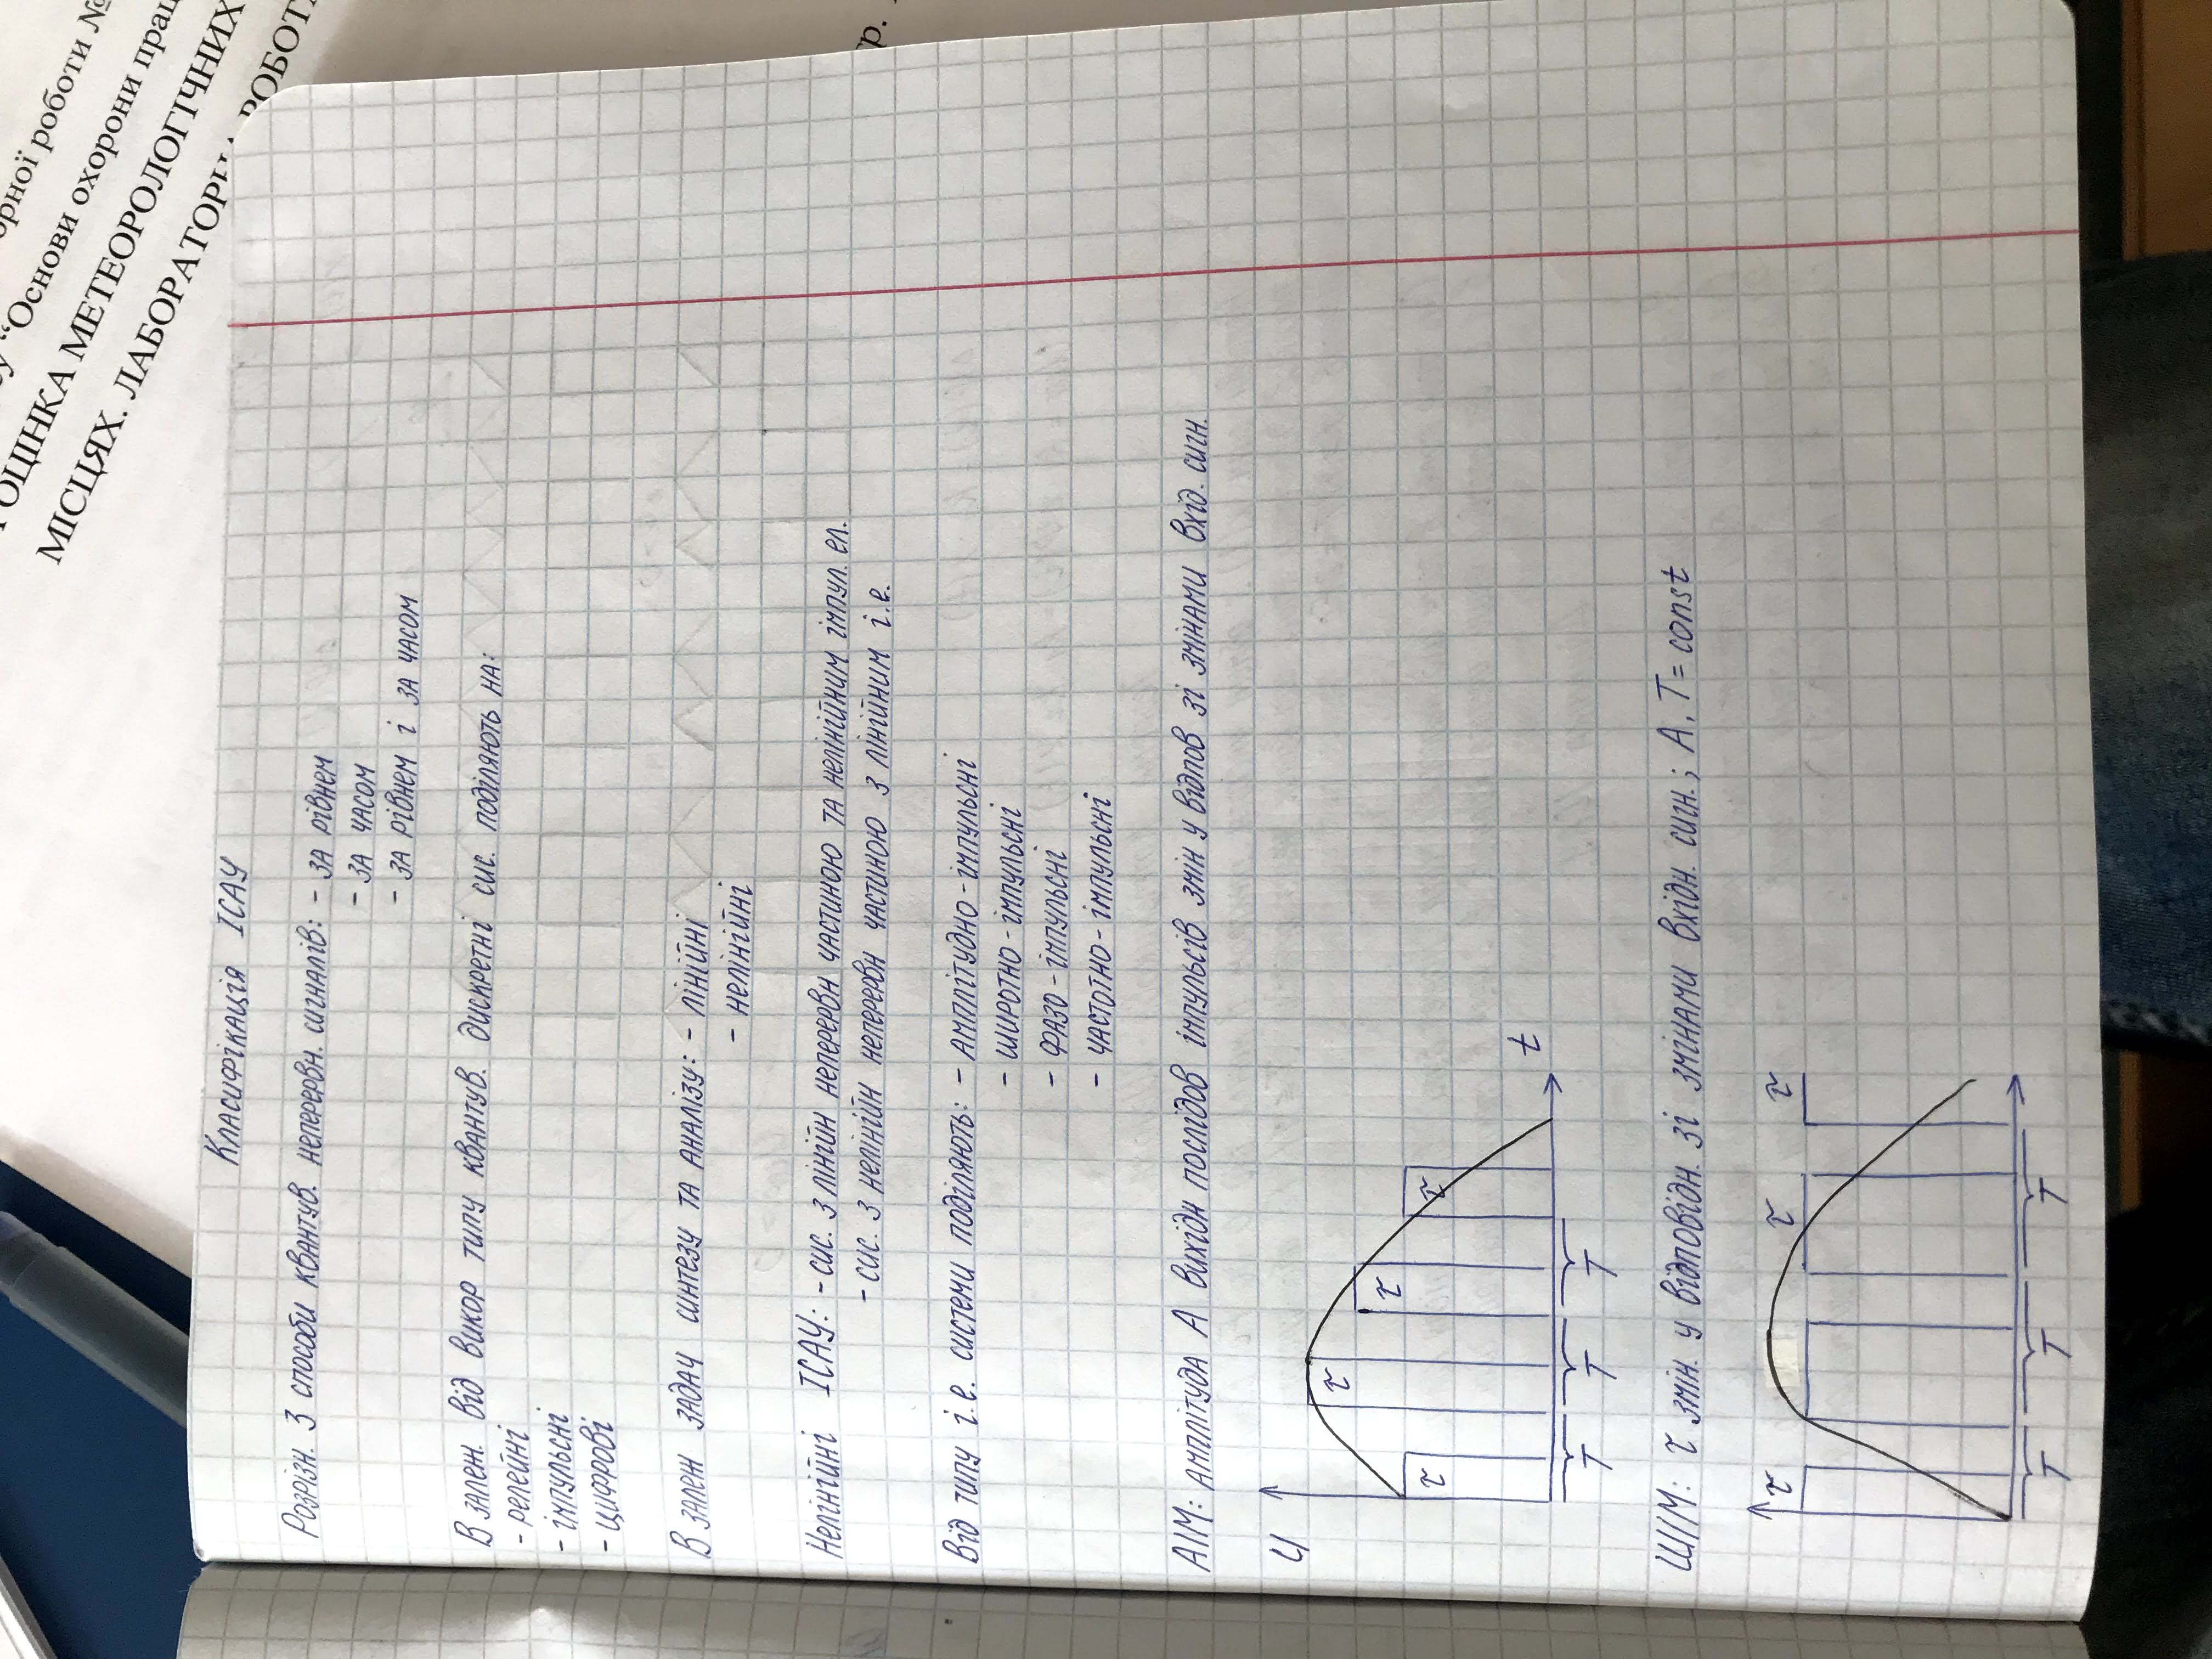 орної роботи №
су “Основи охорони прац
ОЦІНКА МЕТЕОРОЛОГІЧНИХ
МІСЦЯХ. ЛАБОРАТОРНА РОБОТ
Класифікація ІСАУ
Розрізн. 3 способи квантув. неперервн. сигналів: - за рівнем
- за часом
- за рівнем і за часом
В залеж. від викор типу квантув. дискретні сис. поділяють на:
- релейні
- імпульсні
- цифрові
В залеж задач синтезу та аналізу: - лінійні
- нелінійні
Нелінійні ІСАУ: - сис. з лінійн неперервн частиною та нелінійним імпул. ел.
- сис. з нелінійн неперервн частиною з лінійним і.е.
Від типу і.е. системи поділяють: - амплітудно-імпульсні
- широтно-імпульсні
- фазо-імпульсні
- частотно-імпульсні
АІМ: амплітуда А вихідн послідов імпульсів змін у відпов зі змінами вхід. сигн.
U
τ
τ
τ
τ
t
T T T
ШІМ: τ змін. у відповідн. зі змінами вхідн. сигн.; A, T = const
τ τ τ
T T T